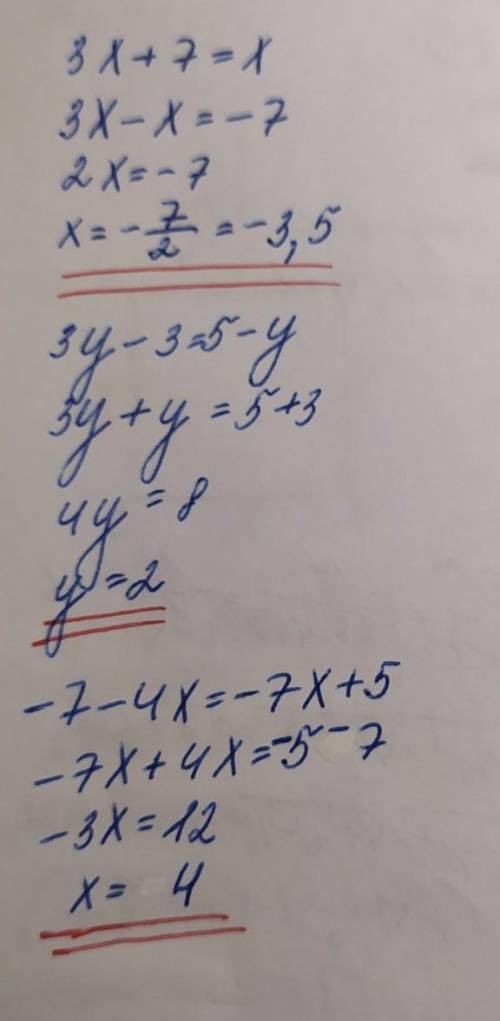 3x + 7 = x
3x - x = -7
2x = -7
x = -7/2 = -3,5
3y - 3 = 5 - y
3y + y = 5 + 3
4y = 8
y = 2
-7 - 4x = -7x + 5
-7x + 4x = -5 - 7
-3x = 12
x = 4